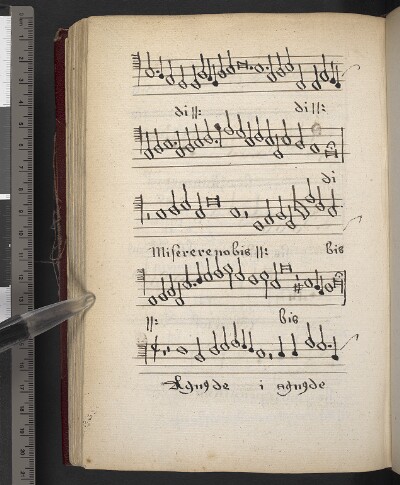 di :||:
di :||:
di
Miserere nobis :||: bis
:||: bis
Agn9 de i agn9 de